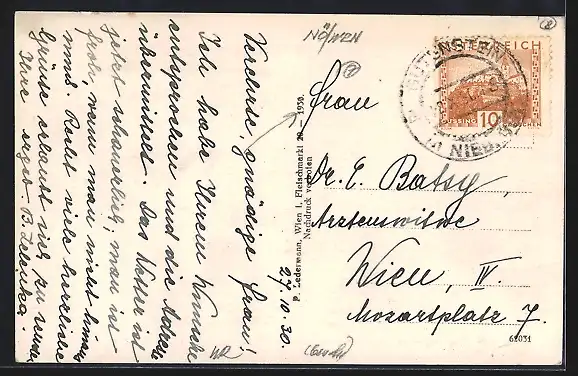 NÖ/WEN
Verehrte, gnädige Frau!
Ich habe Ihrem Wunsche
entsprochen und die Adresse
übermittelt. Das Wetter ist
jetzt schauerlich, man ist
froh, wenn man nicht hinaus
muss. Recht viele herzliche
Grüsse erlaubt sich zu senden
Ihre ergeb. B.
27.10.30
P. Ledermann, Wien I, Fleischmarkt 20 1930.
Nachdruck verboten
ÖSTERREICH
10
GÜSSING GROSCHEN
GUTENSTEIN
Frau
Dr. E. Batsy,
Arztenswitwe
Wien, IV.
Mozartplatz 7.
62031